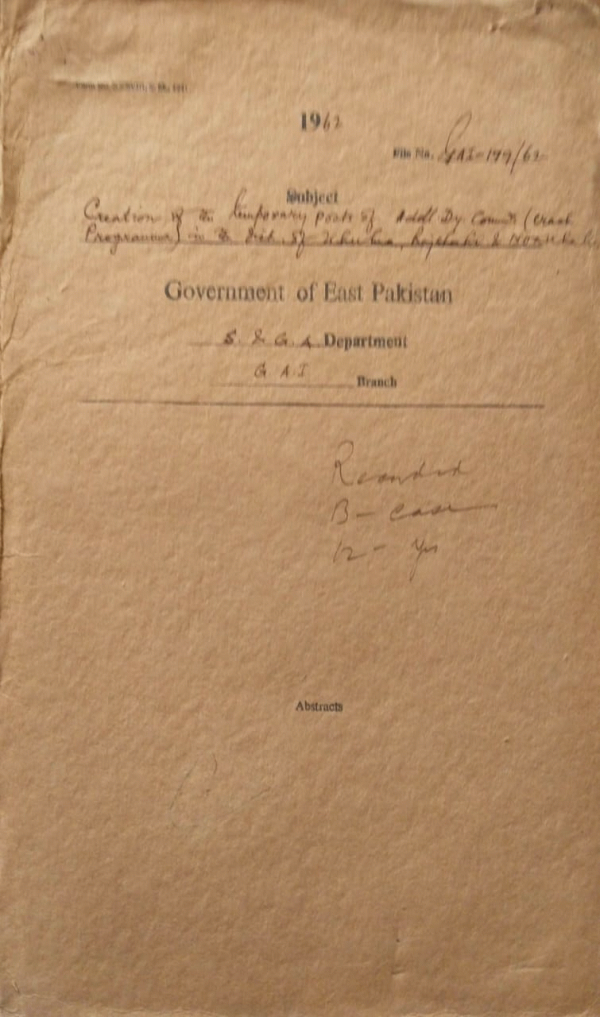 1962
File No. GAI-199/62
Subject
Creation of the temporary posts of Addl Dy Comm (Crash
Programme) in the Dist. of Khulna, Rajshahi &
Government of East Pakistan
S. & G. A Department
G A I Branch
Recorded
B - case
12 - Yrs
Abstracts